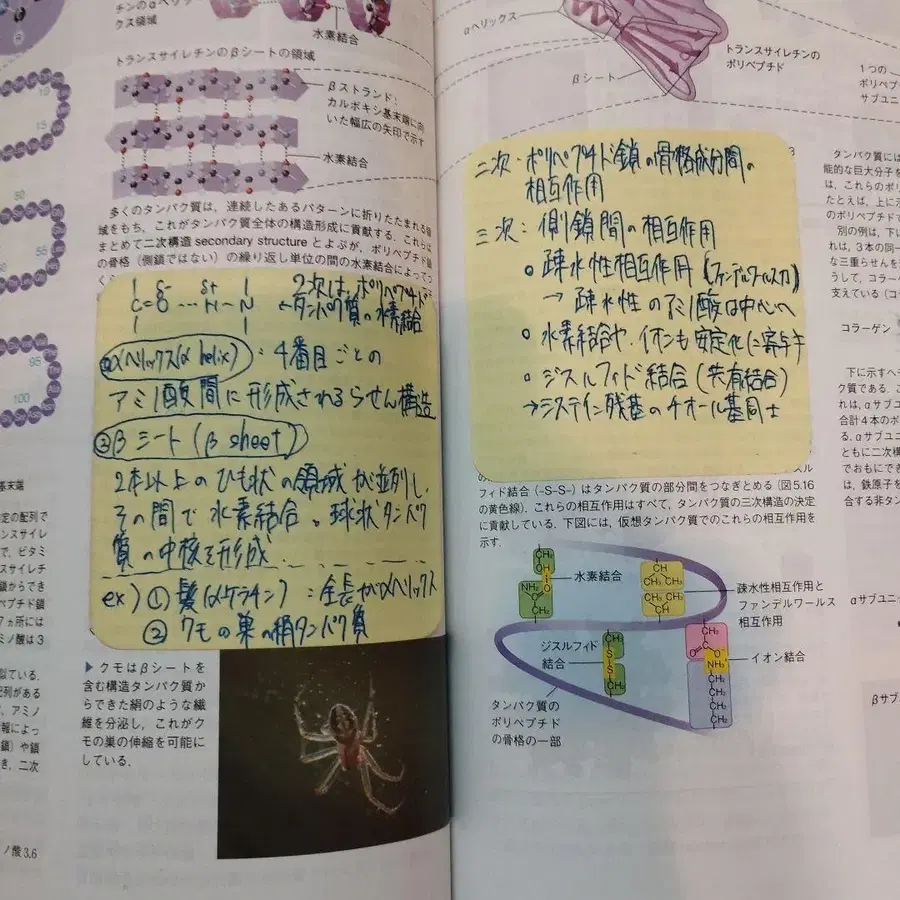 チンのαヘリッ
クス領域
水素結合
トランスサイレチンのβシートの領域
βストランド：
カルボキシ基末端に向
いた幅広の矢印で示す
水素結合
多くのタンパク質は，連続したあるパターンに折りたたまれる領
域をもち，これがタンパク質全体の構造形成に貢献する．これらは
まとめて二次構造 secondary structure とよぶが，ポリペプチド鎖
の骨格（側鎖ではない）の繰り返し単位の間の水素結合によってつ
δ- δ+
C=O ... H-N
2次は、ポリペプチド
タンパク質の水素結合
αヘリックス(α helix)：4番目ごとの
アミノ酸間に形成されるらせん構造
②βシート(β sheet)
2本以上のひも状の領域が並列し、
その間で水素結合。球状タンパク
質の中核を形成.
ex) ① 髪(αケラチン)：全長がαヘリックス
② クモの巣の絹タンパク質
▶クモはβシートを
含む構造タンパク質か
らできた絹のような繊
維を分泌し，これがク
モの巣の伸縮を可能に
している．
50
55
95
100
基末端
ノ酸3.6
αヘリックス
βシート
トランスサイレチンの
ポリペプチド
1つの
ポリペプ
サブユニ
二次：ポリペプチド鎖の骨格成分間の
相互作用
三次：側鎖間の相互作用
○疎水性相互作用(ファンデルワールス力)
→疎水性のアミノ酸は中心へ
○水素結合や、イオンも安定化に寄与
○ジスルフィド結合(共有結合)
→システイン残基のチオール基同士
フィド結合（–S–S–）はタンパク質の部分間をつなぎとめる（図5.16
の黄色線）．これらの相互作用はすべて，タンパク質の三次構造の決定
に貢献している．下図には，仮想タンパク質でのこれらの相互作用を
示す．
水素結合
疎水性相互作用と
ファンデルワールス
相互作用
ジスルフィド
結合
イオン結合
タンパク質の
ポリペプチド
の骨格の一部
CH
OH
O
NH₂
C
CH₂
CH
CH₃ CH₃
CH₃ CH₃
CH
CH₂
S
S
CH₂
CH₂
C
O
O⁻
NH₃⁺
CH₂
CH₂
CH₂
CH₂
タンパク質には
能的な巨大分子を
は，これらのポリ
たとえば，上に示
のポリペプチドで
別の例は，下に
れは，3本の同一
な三重らせんを
うして，コラー
支えている（コ
コラーゲン
下に示すヘモ
ク質である．こ
れは，αサブユニ
合計4本のポリ
る．αサブユニ
ともに二次構
でおもにでき
は，鉄原子を
合する非タン
αサブユニ
βサブユ